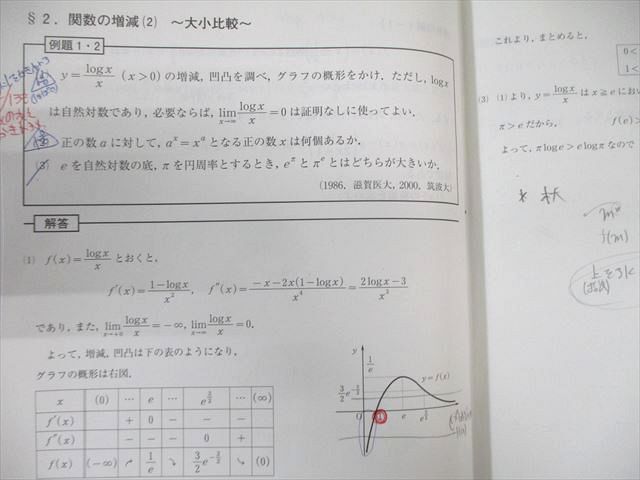 §2. 関数の増減(2) ～大小比較～
例題1・2
y=logx/x (x>0)の増減,凹凸を調べ,グラフの概形をかけ. ただし, logx
は自然対数であり,必要ならば, lim x→∞ logx/x=0 は証明なしに使ってよい.
正の数aに対して, a^x=x^a となる正の数xは何個あるか.
(3) eを自然対数の底, πを円周率とするとき, e^πとπ^eとはどちらが大きいか.
(1986. 滋賀医大, 2000. 筑波大)
解答
(1) f(x)=logx/x とおくと,
f′(x)=1−logx/x², f″(x)=−x−2x(1−logx)/x⁴=2logx−3/x³
であり,また, lim x→+0 logx/x=−∞, lim x→∞ logx/x=0.
よって,増減,凹凸は下の表のようになり,
グラフの概形は右図.
x (0) … e … e^(3/2) … (∞)
f′(x) + 0 − − −
f″(x) − − − 0 +
f(x) (−∞) ↗ 1/e ↘ 3/2 e^(−3/2) ↘ (0)
y
1/e
y=f(x)
3/2 e^(−3/2)
O 1 e e^(3/2)
これより,まとめると,
0<
1<
(3) (1)より, y=logx/x は x≧e におい
π>e だから, f(e)>
よって, πloge>elogπ なので
f(m)